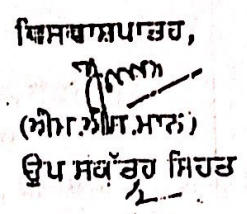 ਵਿਸਵਾਸ਼ਪਾਤਰ,
(ਐਮ.ਐਸ.ਮਾਨ)
ਉਪ ਸਕੱਤਰ ਸਿਹਤ